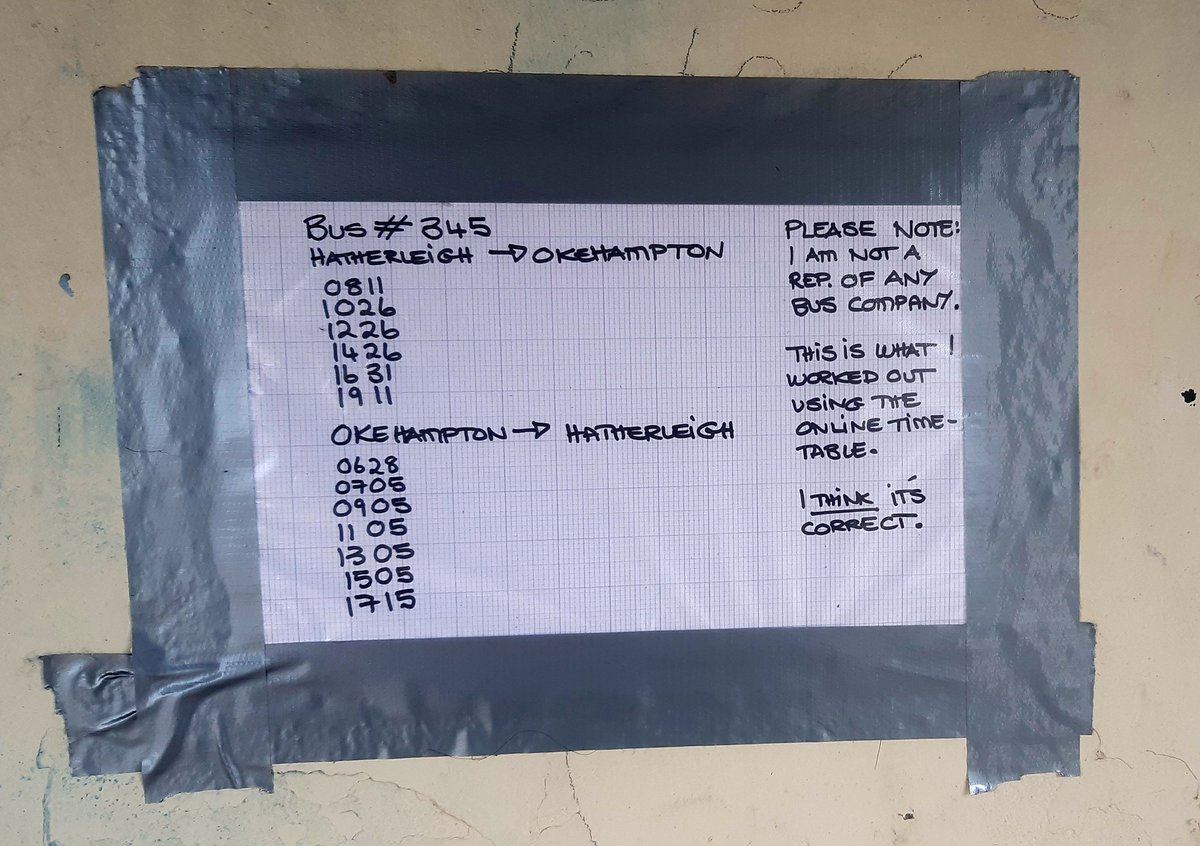 Bus # 345
HATHERLEIGH → OKEHAMPTON
0811
1026
1226
1426
1631
1911
OKEHAMPTON → HATHERLEIGH
0628
0705
0905
1105
1305
1505
1715
PLEASE NOTE:
I AM NOT A
REP. OF ANY
BUS COMPANY.
THIS IS WHAT I
WORKED OUT
USING THE
ONLINE TIME-
TABLE.
I THINK IT'S
CORRECT.